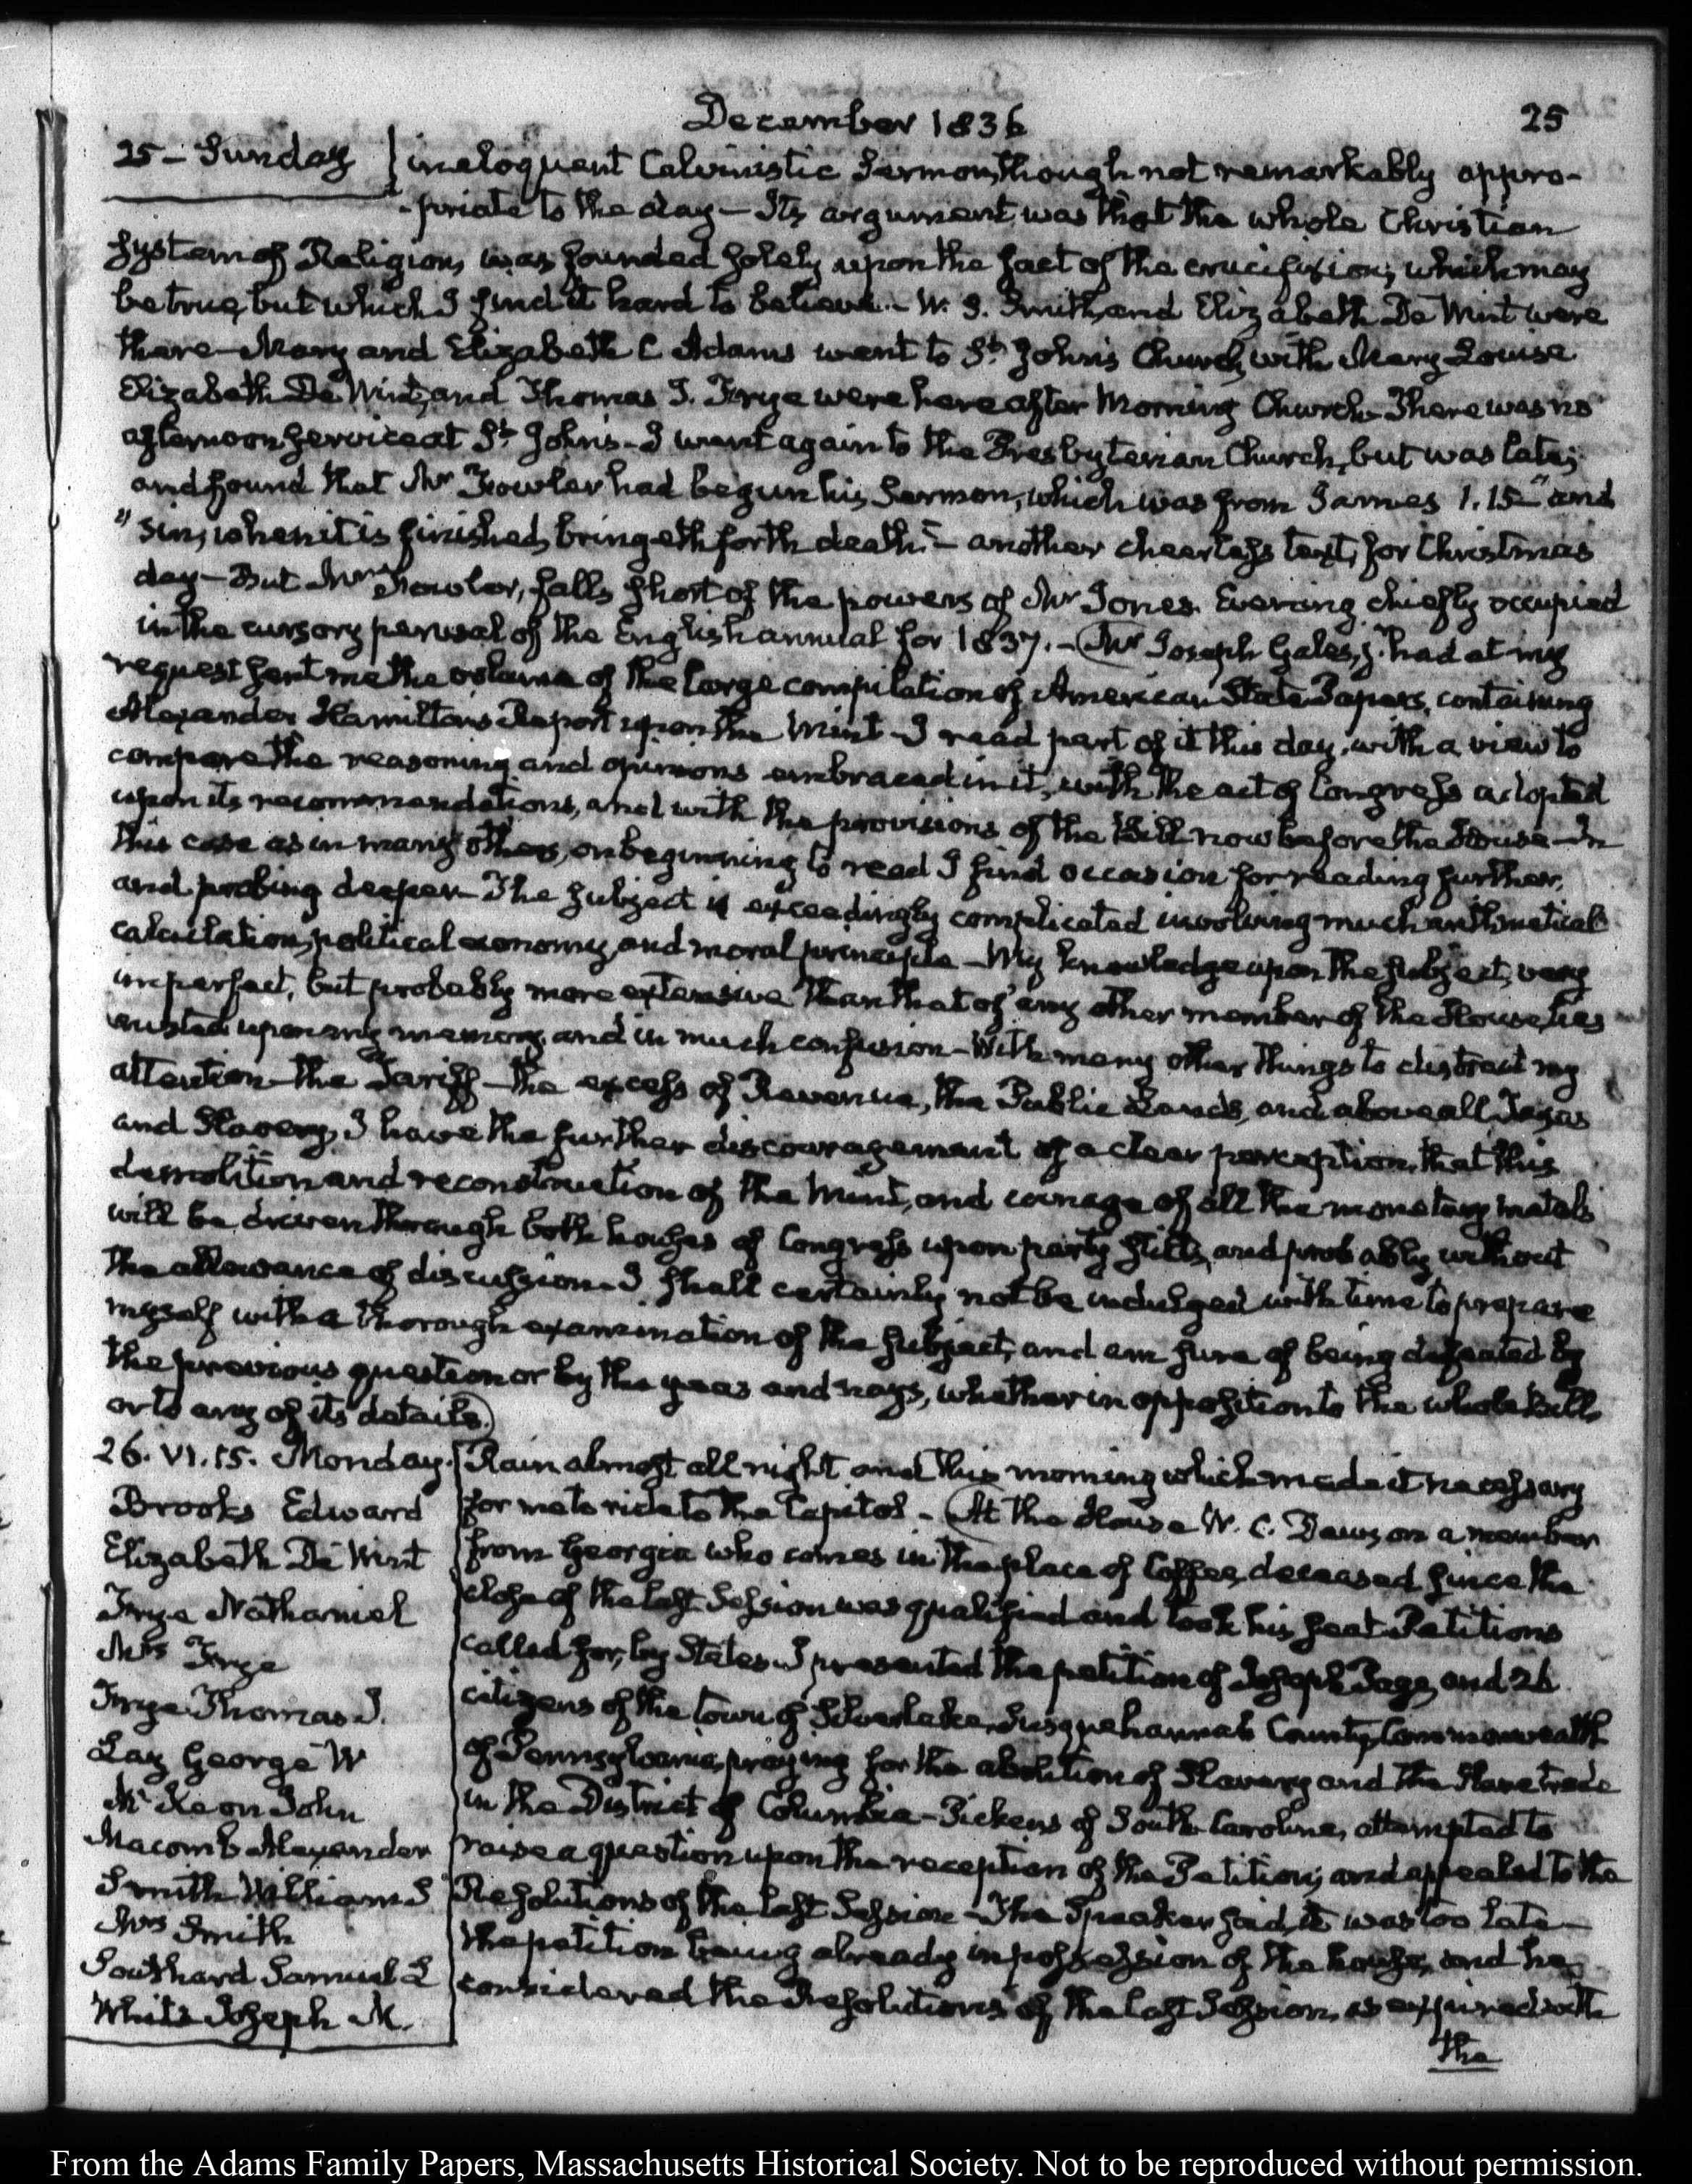 December 1836
25
25 - Sunday
ineloquent Calvinistic Sermon, though not remarkably appro-
-priate to the day — Its argument was that the whole Christian
system of Religion, was founded solely upon the fact of the crucifixion; which may
be true, but which I find it hard to believe. — W. S. Smith, and Elizabeth De Wint were
there — Mary and Elizabeth C Adams went to St. John's Church, with Mary Louisa
Elizabeth De Wint, and Thomas J. Frye were here after Morning Church. There was no
afternoon service at St. John's — I went again to the Presbyterian Church, but was late;
and found that Mr Fowler had begun his Sermon, which was from James 1.15 "and
"sin, when it is finished, bringeth forth death." — another cheerless text, for Christmas
day — But Mr Fowler, falls short of the powers of Mr Jones. Evening chiefly occupied
in the cursory perusal of the English annual for 1837. — (Mr Joseph Gales, jr. had at my
request sent me the volume of the large compilation of American State Papers, containing
Alexander Hamilton's Report upon the Mint — I read part of it this day, with a view to
compare the reasoning and opinions embraced in it, with the act of Congress adopted
upon its recommendations, and with the provisions of the Bill now before the House — In
this case as in many others, on beginning to read I find occasion for reading further,
and probing deeper — The subject is exceedingly complicated involving much arithmetical
calculation, political economy, and moral principle — My knowledge upon the subject, very
imperfect, but probably more extensive than that of any other member of the House, lies
rusted upon my memory, and in much confusion — With many other things to distract my
attention — the Tariff — the excess of Revenue, the Public Lands, and above all Texas
and Slavery, I have the further discouragement of a clear perception, that this
demolition and reconstruction of the Mint, and coinage of all the monetary metals
will be driven through both houses of Congress upon party stilts, and probably without
the allowance of discussion — I shall certainly not be indulged with time to prepare
myself with a thorough examination of the subject, and am sure of being defeated by
the previous question or by the yeas and nays, whether in opposition to the whole bill,
or to any of its details.)
26. VI.15. Monday.
Brooks Edward
Elizabeth De Wint
Frye Nathaniel
Mrs Frye
Frye Thomas J.
Lay George W
McKeon John
Macomb Alexander
Smith William S
Mrs Smith
Southard Samuel L
White Joseph M.
Rain almost all night and this morning which made it necessary
for me to ride to the Capitol. — (At the House W. C. Dawson a member
from Georgia who comes in the place of Coffee, deceased since the
close of the last Session was qualified and took his seat — Petitions
called for, by States — I presented the petition of Joseph Page, and 26
citizens of the town of Silverlake, Susquehannah County, Commonwealth
of Pennsylvania, praying for the abolition of Slavery and the Slave trade
in the District of Columbia — Pickens of South Carolina, attempted to
raise a question upon the reception of the Petition; and appealed to the
Resolutions of the last Session — The Speaker said, it was too late —
the petition being already in possession of the house, and he
considered the Resolutions of the last Session, as expired with
the
From the Adams Family Papers, Massachusetts Historical Society. Not to be reproduced without permission.